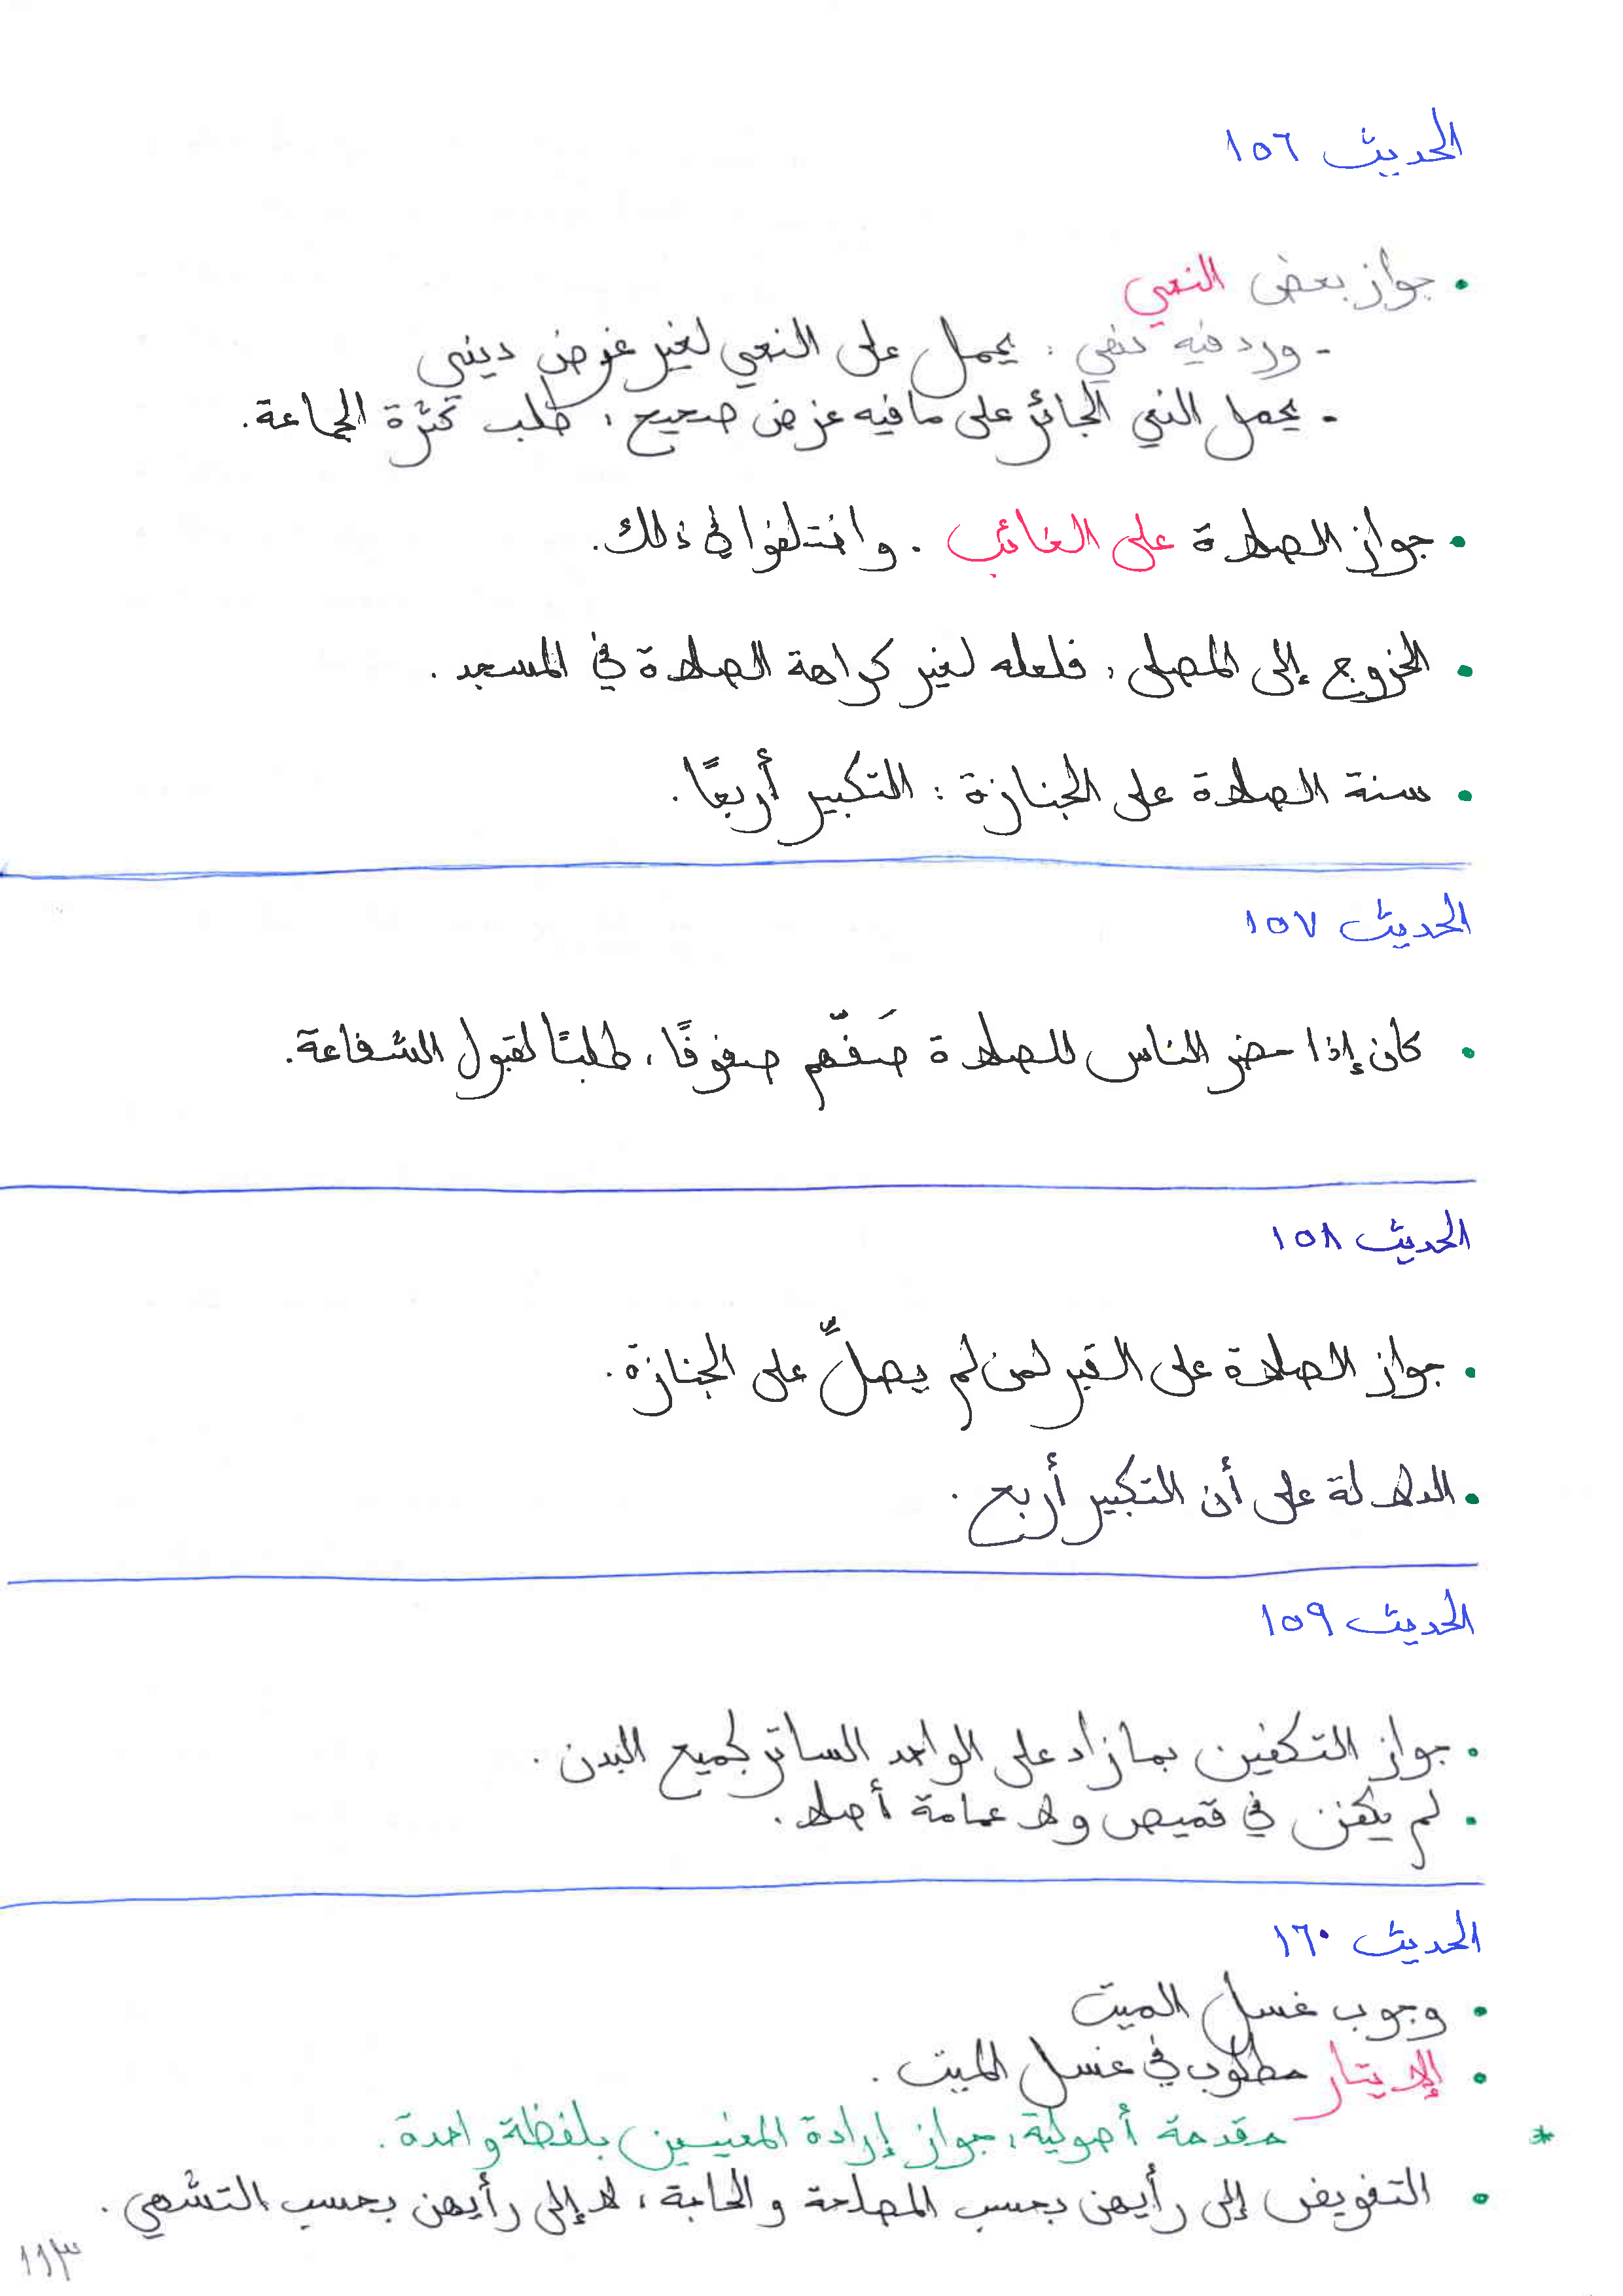 الحديث ١٥٦
• جواز بعض النعي
- ورد فيه نهي : يحمل على النعي لغير غرض ديني
- يحمل النعي الجائز على ما فيه غرض صحيح ، طلب كثرة الجماعة .
• جواز الصلاة على الغائب . واختلفوا في ذلك .
• الخروج إلى المصلى ، فلعله لغير كراهة الصلاة في المسجد .
• سنة الصلاة على الجنازة : التكبير أربعًا .
الحديث ١٥٧
• كان إذا حضر الناس للصلاة صَفّهم صفوفًا ، طلبًا لقبول الشفاعة .
الحديث ١٥٨
• جواز الصلاة على القبر لمن لم يصلِّ على الجنازة .
• الدلالة على أن التكبير أربع .
الحديث ١٥٩
• جواز التكفين بما زاد على الواحد الساتر لجميع البدن .
• لم يكفن في قميص ولا عمامة أصلا .
الحديث ١٦٠
• وجوب غسل الميت
• الإيتار مطلوب في غسل الميت .
* مقدمة أصولية ، جواز إرادة المعنيين بلفظة واحدة .
• التفويض إلى رأيهن بحسب المصلحة والحاجة ، لا إلى رأيهن بحسب التشهي .
١١٣